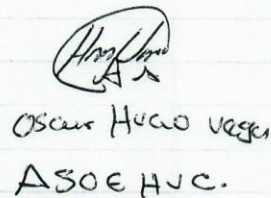 Oscar Hugo Vega
ASOEHVC.